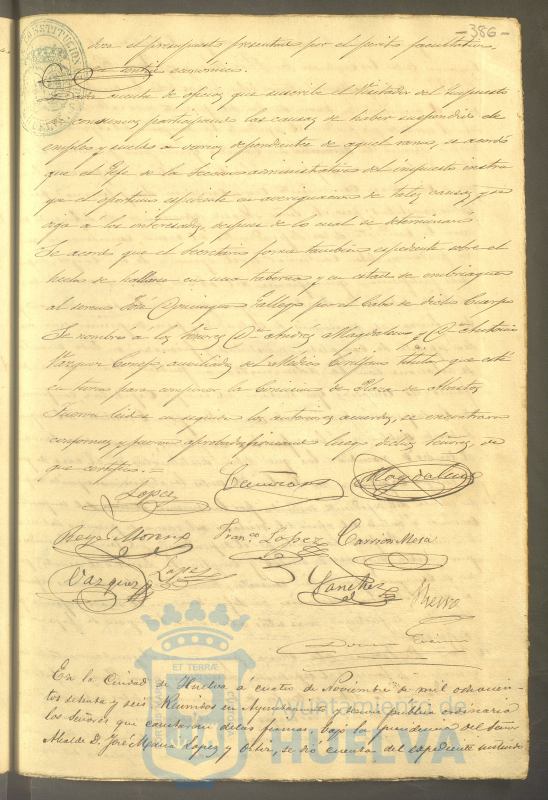 -386-
para el presupuesto presentado por el perito facultativo
económico.
cuenta de oficios que suscribe el Visitador del Impuesto
de consumos participando las causas de haber suspendido de
empleo y sueldo a varios dependientes de aquel ramo, se acordó
que el Gefe de la Seccion administrativa del impuesto instru
ya el oportuno espediente en averiguacion de tales causas y
oiga á los interesados, despues de lo cual se determinará
Se acordó que el Secretario forme tambien espediente sobre el
hecho de hallarse en una taberna y en estado de embriaguez
al sereno José Dominguez Gallego por el Cabo de dicho Cuerpo
Se nombró á los Señores Dn Andrés Magdalena y Dn Antonio
Vazquez Conejo, auxiliados del Médico Cirujano titular que esté
en turno para componer la Comision de Plaza de Abastos
Fueron leidos en seguida los anteriores acuerdos, se encontraron
conformes y fueron aprobados firmando luego dichos Señores, de
que certifico.=
Lopez
Magdalena
Reyes Moreno
Franco Lopez
Carrion Mesa
Vazquez
Lopez
Sanchez
En la Ciudad de Huelva á cuatro de Noviembre de mil ochocien
tos setenta y seis Reunidos en Ayuntamiento y sesion publica ordinaria
los Señores que constarán de las firmas bajo la presidencia del Señor
Alcalde D. José Maria Lopez y Otero, se dió cuenta del espediente instruido
ET TERRÆ
Ayuntamiento de
HUELVA